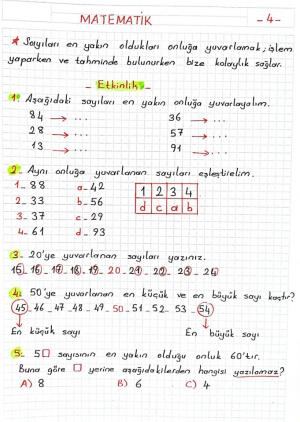 MATEMATİK -4-
* Sayıları en yakın oldukları onluğa yuvarlamak, işlem
yaparken ve tahminde bulunurken bize kolaylık sağlar.
- Etkinlik -
1- Aşağıdaki sayıları en yakın onluğa yuvarlayalım.
84 → ... 36 → ...
28 → ... 57 → ...
13 → ... 91 → ...
2- Aynı onluğa yuvarlanan sayıları eşleştirelim.
1- 88 a- 42 1 2 3 4
2- 33 b- 56 d c a b
3- 37 c- 29
4- 61 d- 93
3- 20'ye yuvarlanan sayıları yazınız.
15 - 16 - 17 - 18 - 19 - 20 - 21 - 22 - 23 - 24
4- 50'ye yuvarlanan en küçük ve en büyük sayı kaçtır?
45 - 46 - 47 - 48 - 49 - 50 - 51 - 52 - 53 - 54
En küçük sayı En büyük sayı
5- 5□ sayısının en yakın olduğu onluk 60'tır.
Buna göre □ yerine aşağıdakilerden hangisi yazılamaz?
A) 8 B) 6 C) 4